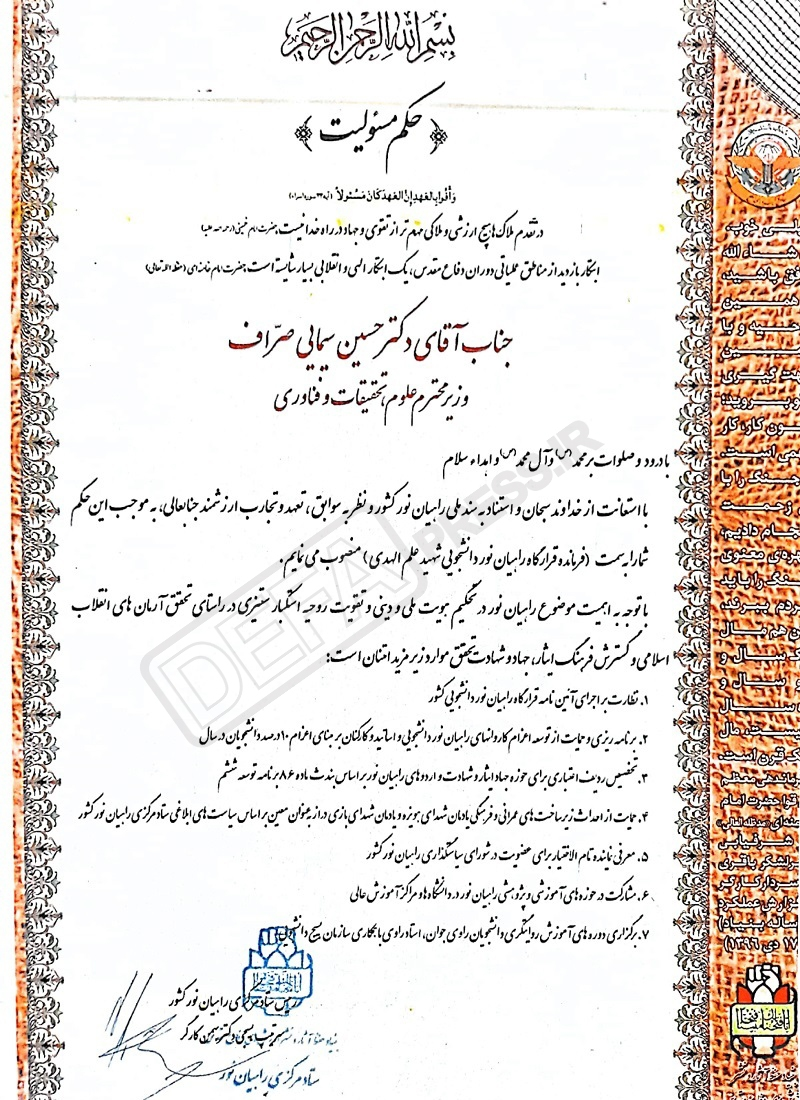 بسم الله الرحمن الرحیم
حکم مسئولیت
وَ أَوْفُوا بِالعَهدِ إِنَّ العَهدَ کَانَ مَسئُولاً
در تقدم ملاک‌ها هیچ ارزشی و ملاکی مهم تر از تقوی و جهاد در راه خدا نیست حضرت امام خمینی
ابتکار بازدید از مناطق عملیاتی دوران دفاع مقدس، یک ابتکار الهی و انقلابی بسیار شایسته است حضرت امام خامنه‌ای
جناب آقای دکتر حسین سیمایی صرّاف
وزیر محترم علوم، تحقیقات و فناوری
با درود و صلوات بر محمد (ص) و آل محمد (ص) و اهداء سلام
با استعانت از خداوند سبحان و استناد به سند ملی راهیان نور کشور و نظر به سوابق، تعهد و تجارب ارزشمند جنابعالی، به موجب این حکم
شما را به سمت (فرمانده قرارگاه راهیان نور دانشجویی شهید علم الهدی) منصوب می نمایم.
با توجه به اهمیت موضوع راهیان نور در تحکیم هویت ملی و دینی و تقویت روحیه استکبار ستیزی در راستای تحقق آرمان های انقلاب
اسلامی و گسترش فرهنگ ایثار، جهاد و شهادت تحقق موارد زیر مزید امتنان است:
۱. نظارت بر اجرای آئین نامه قرارگاه راهیان نور دانشجویی کشور
۲. برنامه ریزی و حمایت از توسعه اعزام کاروانهای راهیان نور دانشجویی و اساتید و کارکنان بر مبنای اعزام ۱۰ درصد دانشجویان در سال
۳. تخصیص ردیف اعتباری برای حوزه جهاد ایثار و شهادت و اردوهای راهیان نور بر اساس بند ث ماده ۸۶ برنامه توسعه ششم
۴. حمایت از احداث زیرساخت های عمرانی و فرهنگی یادمان شهدای هویزه و یادمان شهدای بازی دراز به عنوان معین بر اساس سیاست های ابلاغی ستاد مرکزی راهیان نور کشور
۵. معرفی نماینده تام الاختیار برای عضویت در شورای سیاستگذاری راهیان نور کشور
۶. مشارکت در حوزه های آموزشی و پژوهشی راهیان نور در دانشگاه ها و مراکز آموزش عالی
۷. برگزاری دوره های آموزش روایتگری دانشجویان راوی جوان، استاد راوی با همکاری سازمان بسیج دانشجویی
رئیس ستاد مرکزی راهیان نور کشور
سرتیپ بسیجی دکتر بهمن کارگر
ستاد مرکزی راهیان نور
DEFAPRESS.IR
لی خوب،
شاء الله
باشید،
همین
حیه و با
ین
ت گیری
و بروید؛
ون کار، کار
می است.
جنگ را با
زحمت
جام دادیم،
هره‌ی معنوی
جنگ را باید
ردم ببرند،
ن هم مال
ک سال و
و سال و
سال
یست، مال
ک قرن است.
فرماندهی معظم
قوا حضرت امام
منه‌ای «مدظله‌العالی»
شرفیابی
سرلشکر باقری
سردار کارگر
گزارش عملکرد
ساله بنیاد)
۱۷ دی ۱۳۹۶)